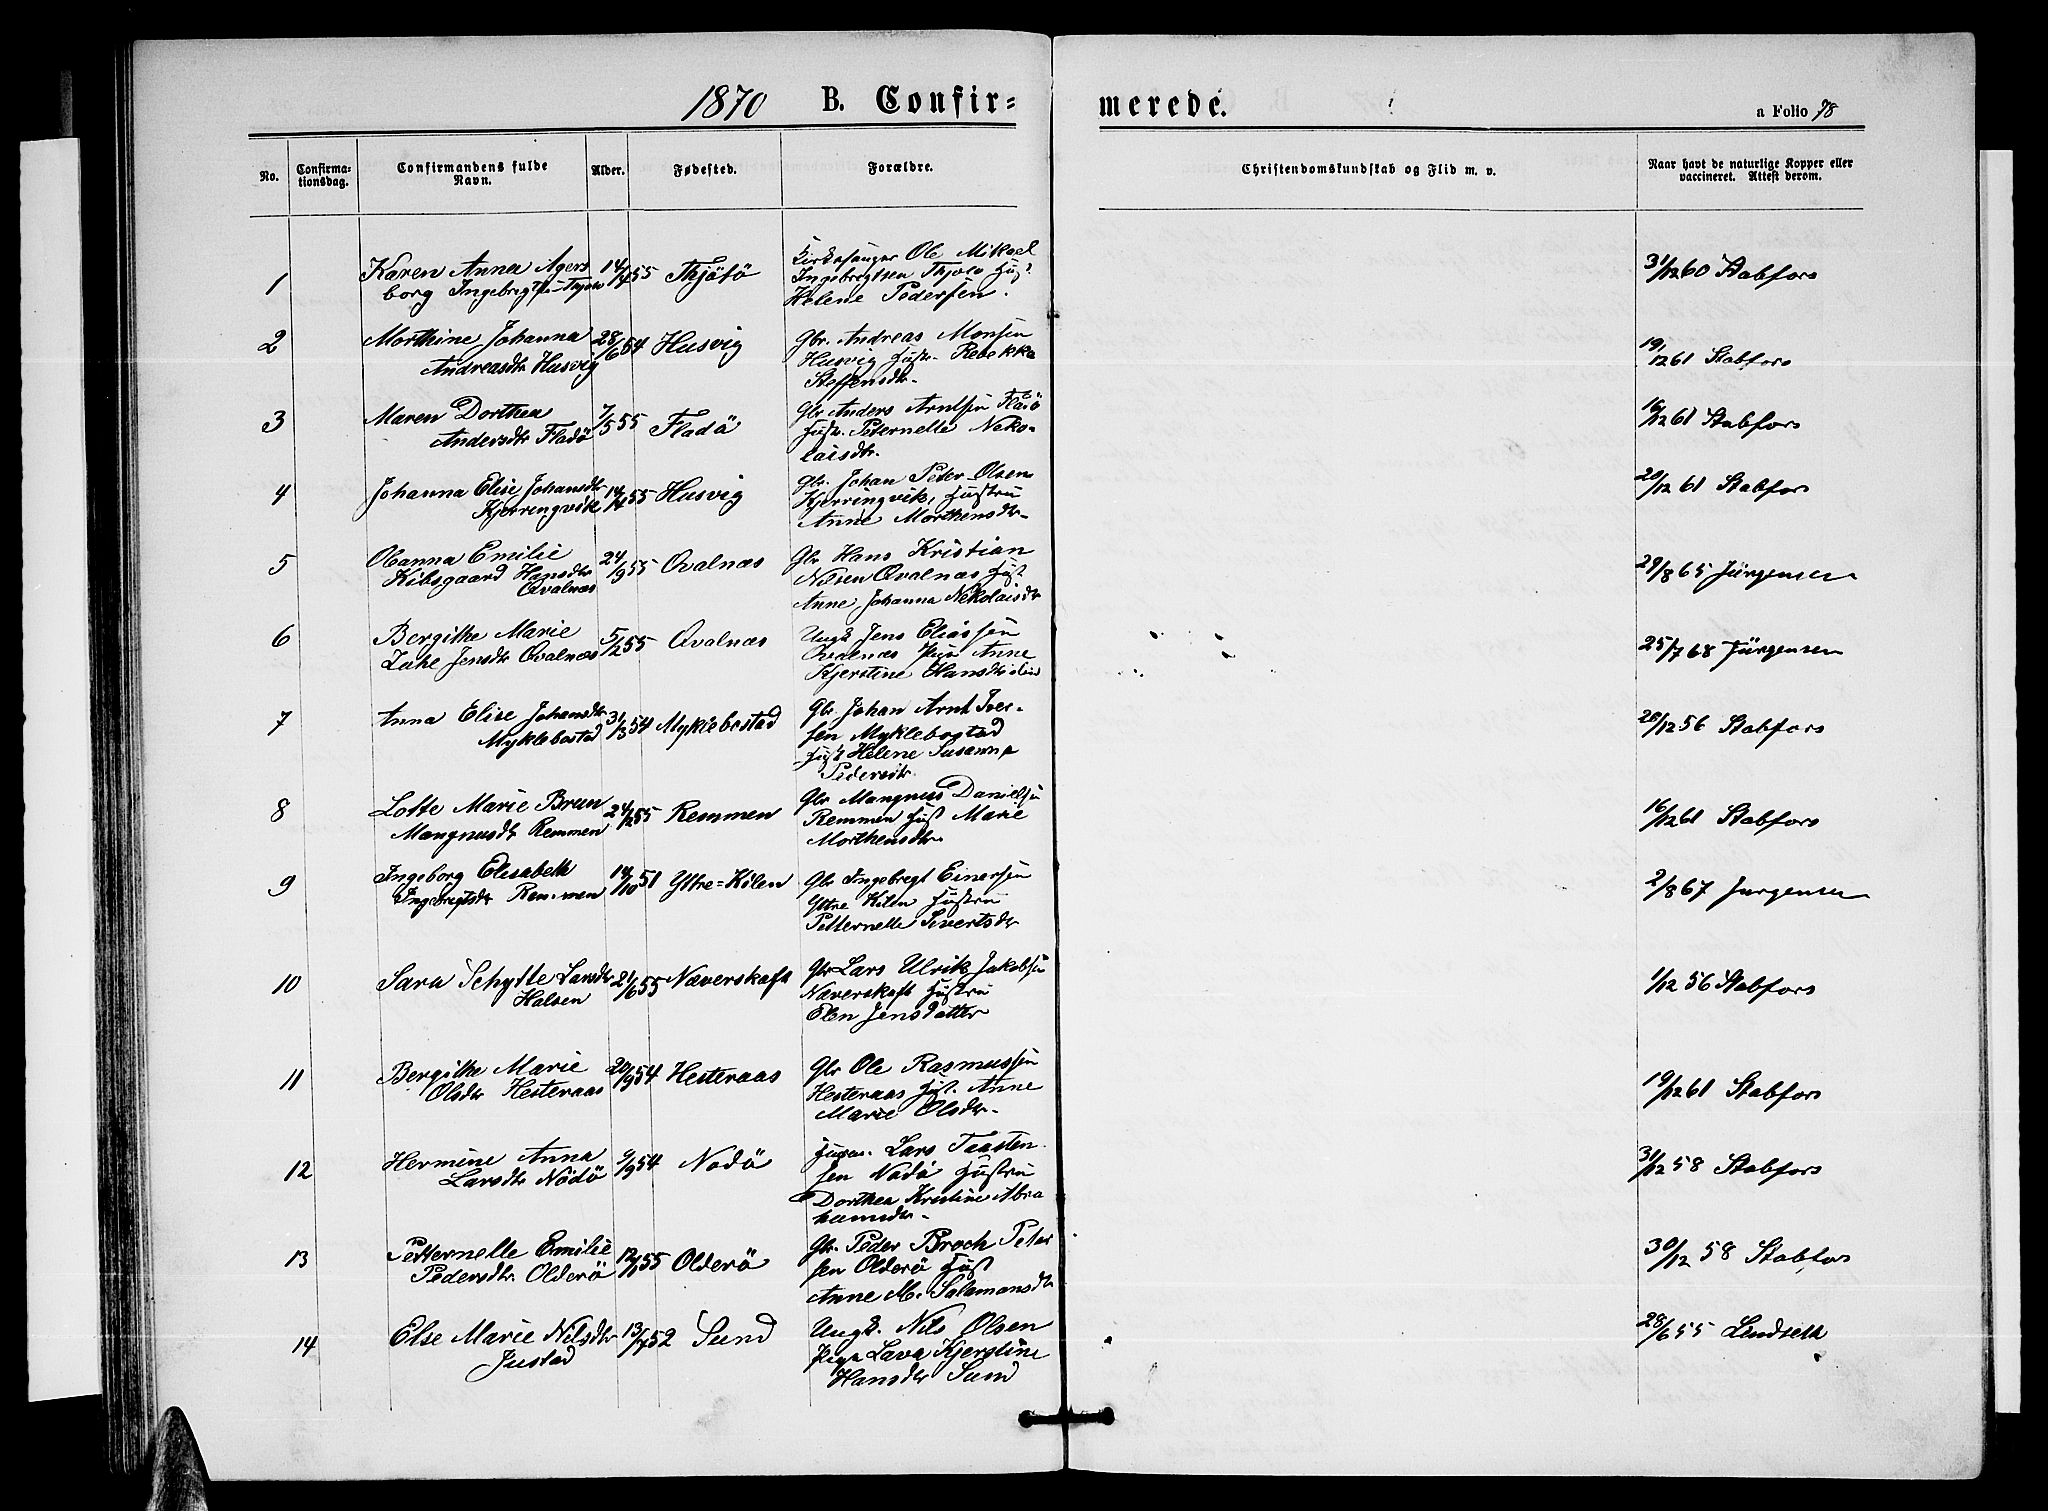 1870 B. Confir=
merede.
a Folio 78
No.
Confirma=
tionsdag.
Confirmandens fulde
Navn.
Alder.
Fødested.
Forældre.
Christendomskundskab og Flid m. v.
Naar havt de naturlige Kopper eller
vaccineret. Attest derom.
1 Karen Anna Agers
borg Ingebrigtsen
14/4 55 Thjötö
Kirkesanger Ole Mikael
Ingebrigtsen Hust.
Helene Pedersen.
31/12 60 Stabfors
2 Morthine Johanna
Andreasdtr Husvig
28/6 54 Husvig
Gbr. Andreas Monsen
Husvig Hustr. Rebekka
Steffensdtr.
19/12 61 Stabfors
3 Maren Dorthea
Andersdtr Fladö
7/5 55 Fladö
Gbr Anders Arntsen Fladö
Hustr. Peternelle Neko-
laisdtr.
16/12 61 Stabfors
4 Johanna Elise Johansdtr
Kjerringvik
14/4 55 Husvig
Gbr. Johan Peter Olsen
Kjerringvik, Hustru
Anne Morthensdtr-
20/12 61 Stabfors
5 Olanna Emilie
Kibsgaard Hansdtr
Qvalnæs
24/9 55 Qvalnæs
Gbr Hans Kristian
Nilsen Qvalnæs Hust
Anne Johanna Nekolaisdtr
29/8 65 Jürgensen
6 Bergithe Marie
Jensdtr Qvalnæs
5/2 55 Qvalnæs
Ungk Jens Eliassen
Qvalnæs Pige Anne
Kjerstine Hansdtr
25/7 68 Jürgensen
7 Anna Elise Johansdtr
Myklebostad
31/3 54 Myklebostad
Gbr. Johan Arnt Iver-
sen Myklebostad
Hust Helene Susanna
Pedersdtr.
20/12 56 Stabfors
8 Lotte Marie Brun
Mangnusdtr Remmen
24/12 55 Remmen
Gbr Mangnus Danielsen
Remmen Hust Marie
Morthensdtr.
16/12 61 Stabfors
9 Ingeborg Elisabeth
Ingebrigtsdtr Remmen
14/10 51 Yttre=Kilen
Gbr Ingebregt Einersen
Yttre Kilen Hustru
Petternelle Sivertsdtr
2/8 67 Jurgensen
10 Sara Schytte Larsdtr
Halsen
21/6 55 Næverskaft
Gbr Lars Ulrik Jakobsen
Næverskaft Hustru
Elen Jensdatter
1/12 56 Stabfors
11 Bergithe Marie
Olsdtr Hesteraas
20/9 54 Hesteraas
Gbr Ole Rasmussen
Hesteraas Hust. Anne
Marie Olsdtr-
19/12 61 Stabfors
12 Hermine Anna
Larsdtr Nödö
9/9 54 Nodö
Lars Taasten
sen Nodö Hustru
Dorthea Kristine Abra
hamsdtr.
31/12 58 Stabfors
13 Petternelle Emilie
Pedersdtr. Olderö
12/1 55 Olderö
Gbr. Peder Broch Peter
sen Olderö Hust
Anne M. Salamonsdtr
30/12 58 Stabfors
14 Else Marie Nilsdtr
Justad
13/7 52 Sund
Ungk. Nils Olsen
Pige Lava Kjerstine
Hansdtr Sund
28/6 55 Lendseth